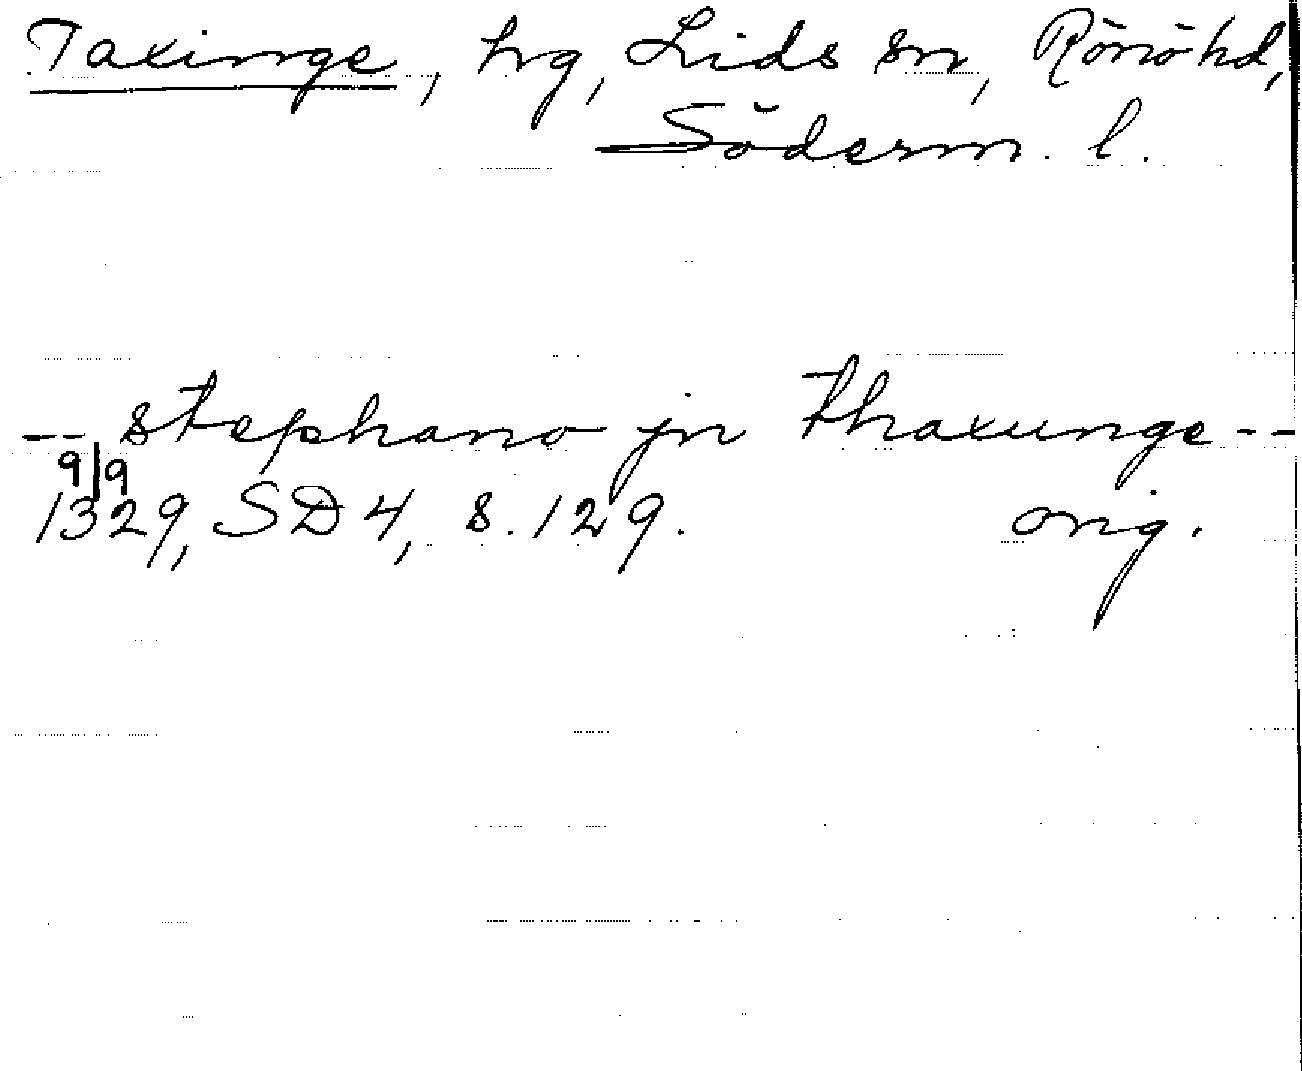 Taxinge, hg, Lids sn, Rönö hd,
Söderm. l.
-- stephano jn thaxunge --
9/9
1329, SD 4, s. 129. orig.